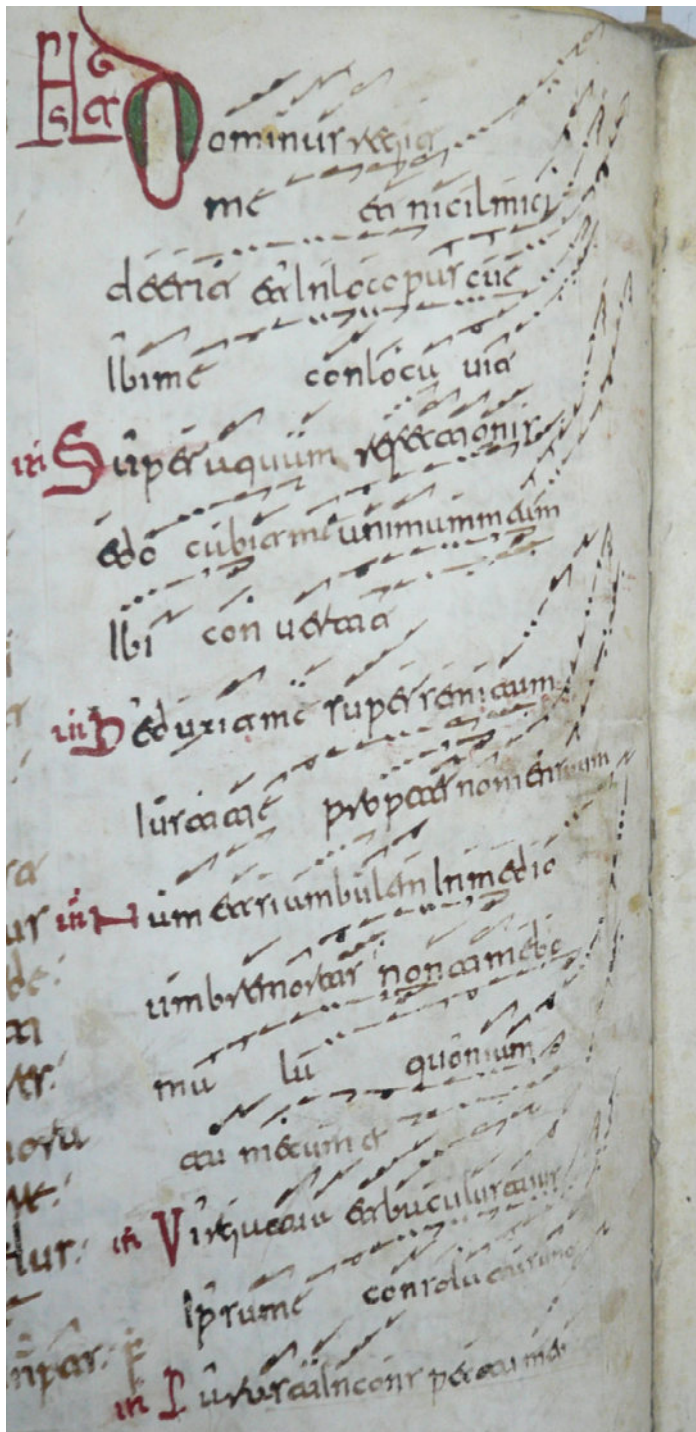 Dominus regit
me et nicil mici
deerit et In loco pascue
Ibi me conlocauit
iii Super aquam refectionis
edocabit me animam meam
Ibi conuertit
iii Deduxit me super semitam
Iustitie propter nomen suum
iii Nam etsi ambulem In medio
umbre mortis non timebo
mala quoniam
tu mecum es
iii Virga tua et baculus tuus
Ipsa me consolata sunt
iii Parasti In conspectu meo